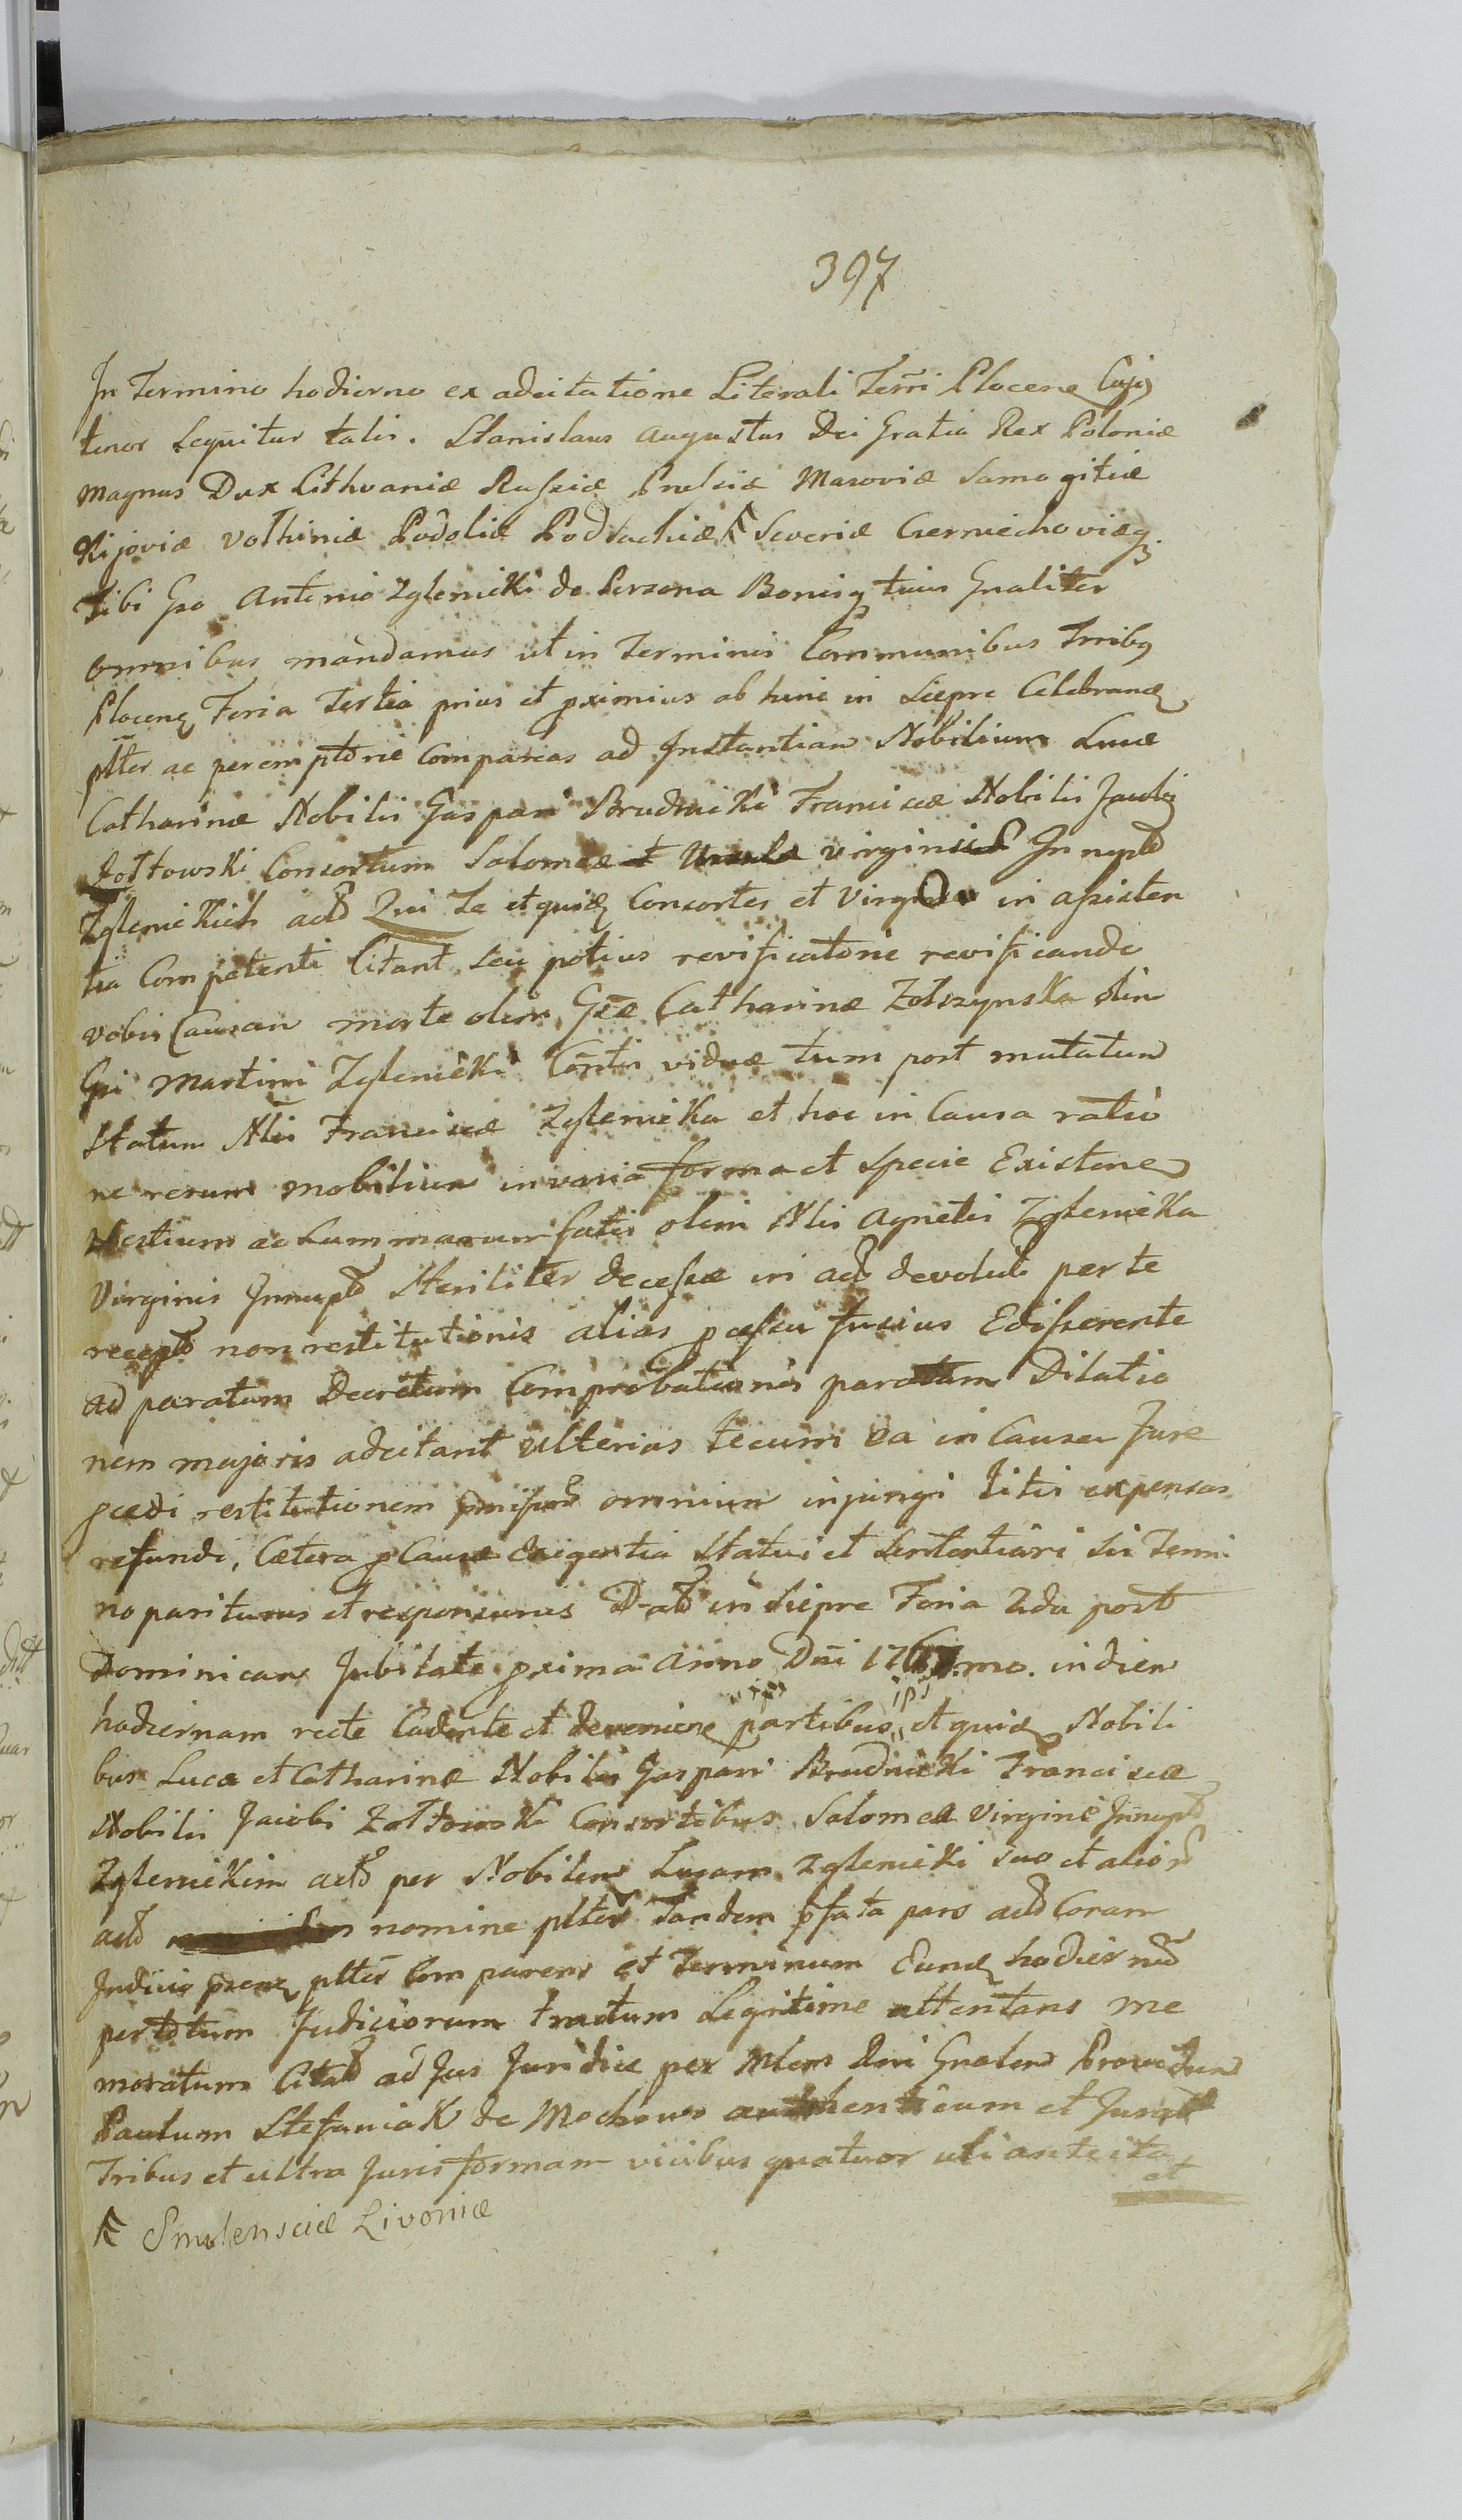 397
In Termino hodierno ex adcitatione Literali Terri Plocene Cujq
tenor sequitur talis. Stanislaus Augustus Dei Gratia Rex Poloniæ
Magnus Dux Lithvaniæ Russiæ Prussiæ Masoviæ Samogitiæ
Kijoviæ Volhiniæ Podoliæ Podlachiæ Severiæ Czerniechoviæq
Tibi Gso Antonio Zglenicki de Persona Bonisq tuis Gnaliter
omnibus mandamus ut in Terminis Communibus Trribq
Plocenq Feria Tertia prius et pximius ab hinc in Siepre Celebranq
plter ac peremptorie Compareas ad Instantiam Nobilium Lucæ
Catharinæ Nobilis Gaspari Brudnicki Franciscæ Nobilis Jacobi
Żołtowski Consortum Salomeæ et Ursula virginis Innupt
Zglenickich act Qui Te et quiq Consortes et Virgo in assisten
tia Competenti Citant seu potius revificatorie revificando
vobis Causam morte olim Gsæ Catharinæ Zolszynska olim
Gsi Martini Zglenicki Contis viduæ tum post mutatum
Statum Nlis Franciscæ Zglenicka et hoc in Causa ratio
ne rerum mobilium in varia forma et specie Existenq
Vestium ac Summarum fatis olim Nlis Agnetis Zglenicka
Virginis Innupt Steriliter decessæ in act devolut per te
recept non restitutionis alias pcessu fusius Edisserente
ad paratum Decretum Comprobationis paratam Dilatio
nem majoris adcitant ulterius tecum ea in Causa Jure
pcedi restitutionem pmissor omnium injungi litis expensas
refundi, Cætera p Causæ Exigentia Statui et Sententiari sis Termi
no pariturus et responsurus Dat in Siepre Feria 2da post
Dominicam Jubilate pxima Anno Dni 1767.mo. in diem
hodiernam recte Cadente et deveniene partibus ipsis et quiq Nobili
bus Luca et Catharinæ Nobilis Gaspari Brudnicki Franciscæ
Nobilis Jacobi Zołtowski Consortibus Salomea Virgine Innupt
Zglenickim act per Nobilem Lucam Zglenicki suo et alior
act nomine plter Tandem pfata pars act Coram
Judicio psenq plter Comparens et Terminum Eunq hodiern
per totum Judiciorum tractum Legitime attentans me
moratum Citat ad Jus Juridice per Mlem Dni Gnalem Providum
Paulum Stefaniak de Mochowo authenticum et Jurat
Tribus et ultra Juris formam vicibus quatuor uti antecita
et
Smolensciæ Livoniæ